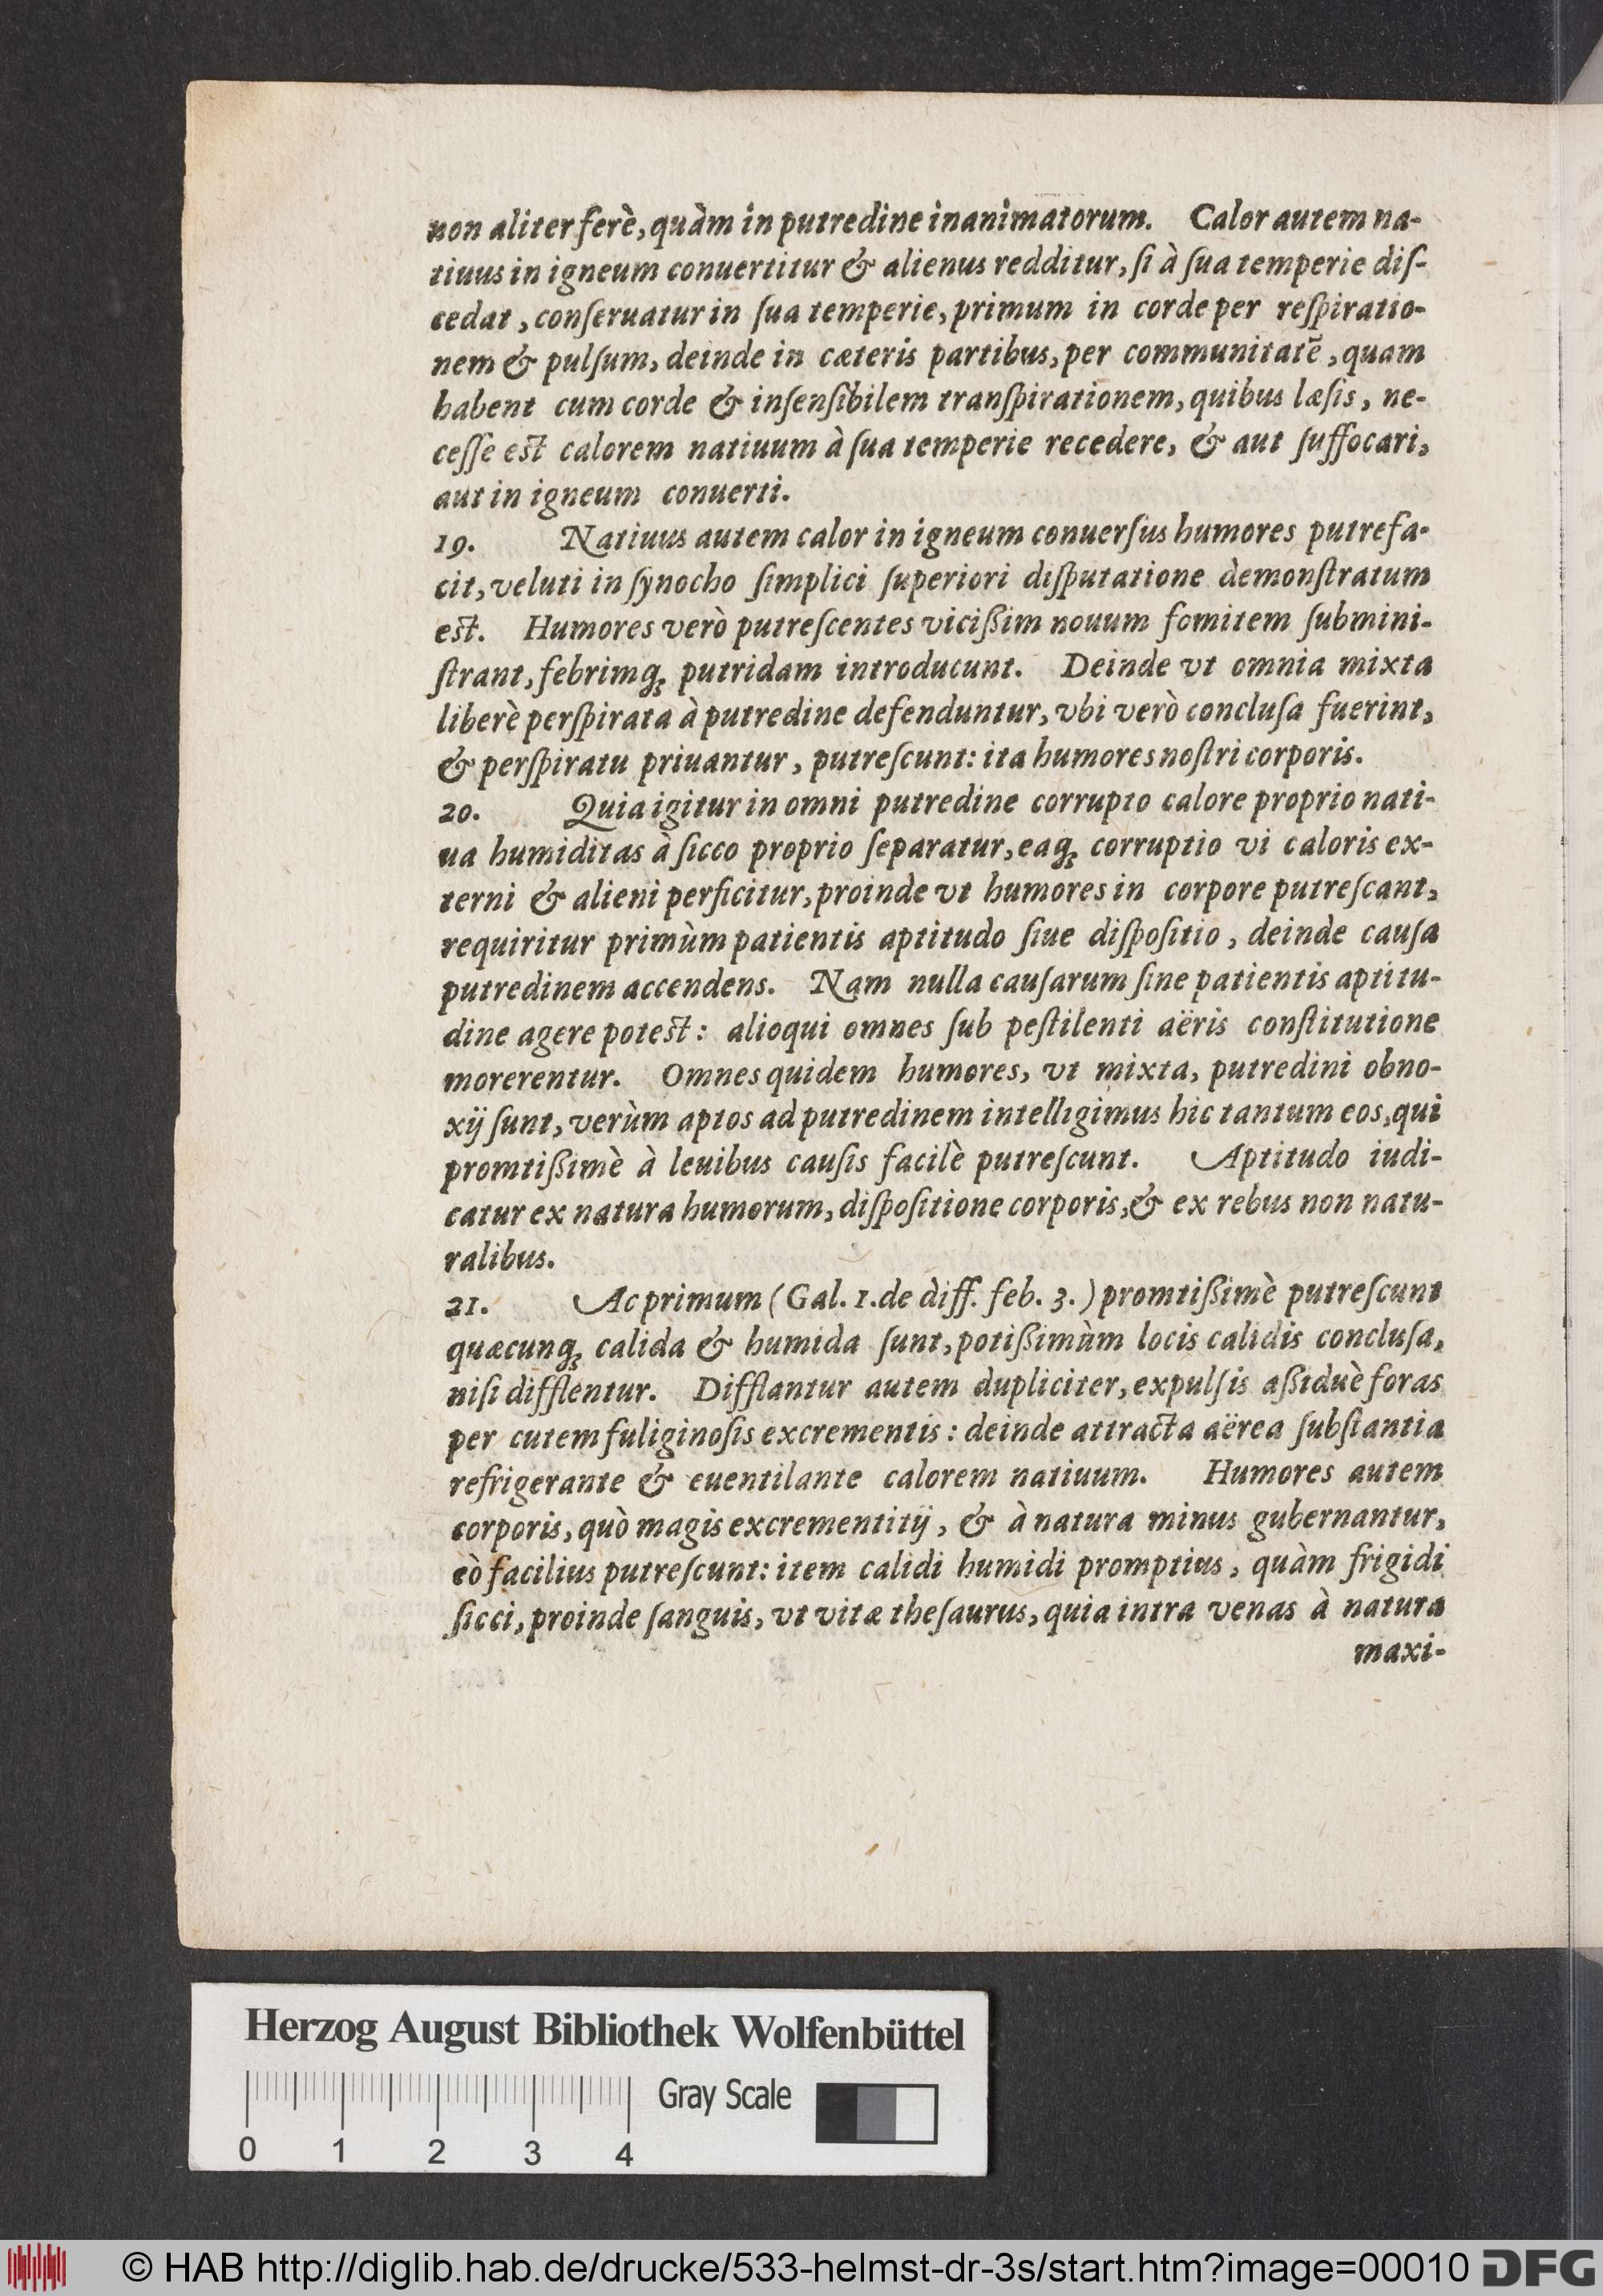 non aliter ferè, quàm in putredine inanimatorum. Calor autem na-
tiuus in igneum conuertitur & alienus redditur, ſi à ſua temperie diſ-
cedat, conſeruatur in ſua temperie, primum in corde per reſpiratio-
nem & pulſum, deinde in cæteris partibus, per communitatē, quam
habent cum corde & inſenſibilem tranſpirationem, quibus læſis, ne-
ceſſe eſt calorem natiuum à ſua temperie recedere, & aut ſuffocari,
aut in igneum conuerti.
19. Natiuus autem calor in igneum conuerſus humores putrefa-
cit, veluti in ſynocho ſimplici ſuperiori diſputatione dèmonſtratum
eſt. Humores verò putreſcentes viciſſim nouum fomitem ſubmini-
ſtrant, febrimq́; putridam introducunt. Deinde vt omnia mixta
liberè perſpirata à putredine defenduntur, vbi verò concluſa fuerint,
& perſpiratu priuantur, putreſcunt: ita humores noſtri corporis.
20. Quia igitur in omni putredine corrupto calore proprio nati-
ua humiditas à ſicco proprio ſeparatur, eaq́; corruptio vi caloris ex-
terni & alieni perficitur, proinde vt humores in corpore putreſcant,
requiritur primùm patientis aptitudo ſiue diſpoſitio, deinde cauſa
putredinem accendens. Nam nulla cauſarum ſine patientis aptitu-
dine agere poteſt: alioqui omnes ſub peſtilenti aëris conſtitutione
morerentur. Omnes quidem humores, vt mixta, putredini obno-
xij ſunt, verùm aptos ad putredinem intelligimus hic tantum eos, qui
promtiſſimè à leuibus cauſis facilè putreſcunt. Aptitudo iudi-
catur ex natura humorum, diſpoſitione corporis, & ex rebus non natu-
ralibus.
21. Ac primum (Gal. 1. de diff. feb. 3.) promtiſſimè putreſcunt
quæcunq́; calida & humida ſunt, potiſſimùm locis calidis concluſa,
niſi difflentur. Difflantur autem dupliciter, expulſis aſſiduè foras
per cutem fuliginoſis excrementis: deinde attracta aërea ſubſtantia
refrigerante & euentilante calorem natiuum. Humores autem
corporis, quò magis excrementitij, & à natura minus gubernantur,
eò facilius putreſcunt: item calidi humidi promptius, quàm frigidi
ſicci, proinde ſanguis, vt vitæ theſaurus, quia intra venas à natura
maxi-
Herzog August Bibliothek Wolfenbüttel
Gray Scale
0 1 2 3 4
© HAB http://diglib.hab.de/drucke/533-helmst-dr-3s/start.htm?image=00010 DFG